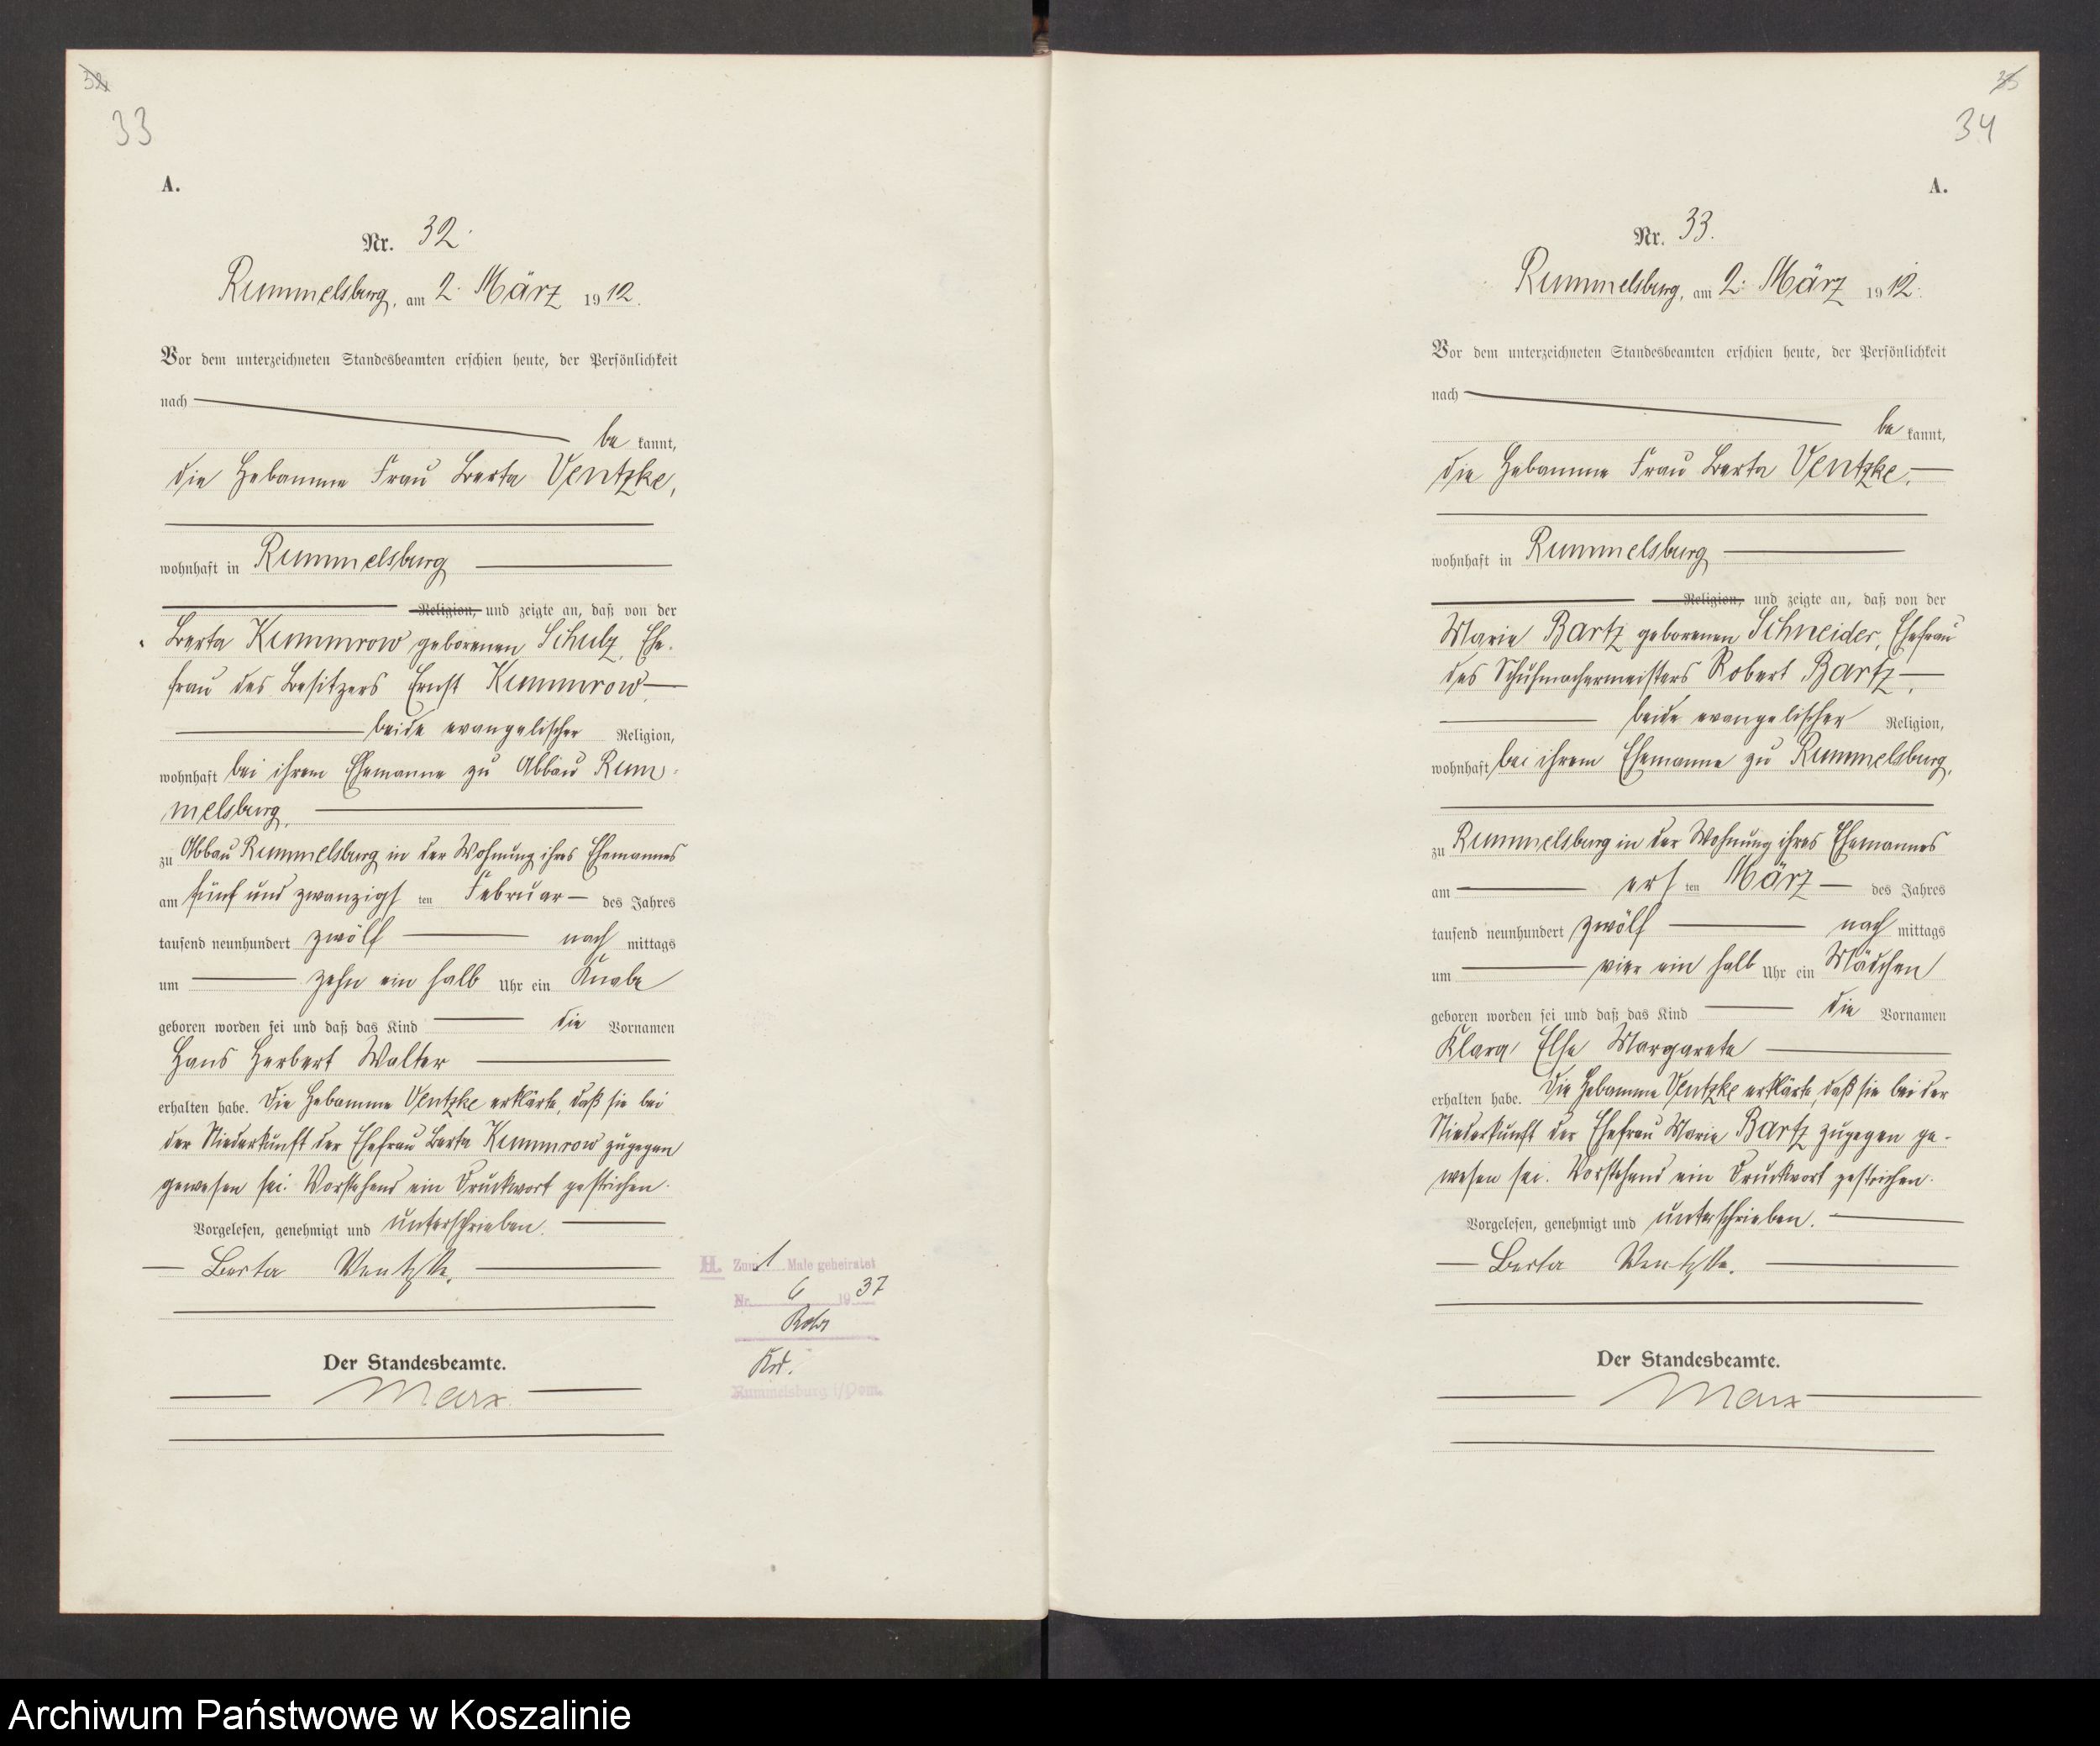 33
A.
Nr. 32.
Rummelsburg, am 2. März 1912.
Vor dem unterzeichneten Standesbeamten erschien heute, der Persönlichkeit
nach
be kannt,
die Hebamme Frau Berta Ventzke,
wohnhaft in Rummelsburg
Religion, und zeigte an, daß von der
Berta Kummrow geborenen Schulz, Ehe-
frau des Besitzers Ernst Kummrow
beide evangelischer Religion,
wohnhaft bei ihrem Ehemanne zu Abbau Rum-
melsburg,
zu Abbau Rummelsburg in der Wohnung ihres Ehemannes
am fünf und zwanzigst ten Februar des Jahres
tausend neunhundert zwölf nach mittags
um zehn ein halb Uhr ein Knabe
geboren worden sei und daß das Kind die Vornamen
Hans Herbert Walter
erhalten habe. Die Hebamme Ventzke erklärte, daß sie bei
der Niederkunft der Ehefrau Berta Kummrow zugegen
gewesen sei. Vorstehend ein Druckwort gestrichen.
Vorgelesen, genehmigt und unterschrieben.
Berta Ventzke.
Der Standesbeamte.
Marx
H. Zum 1 Male geheiratet
Nr. 6 1937
Rummelsburg i/Pom.
34
A.
Nr. 33.
Rummelsburg, am 2. März 1912.
Vor dem unterzeichneten Standesbeamten erschien heute, der Persönlichkeit
nach
be kannt,
die Hebamme Frau Berta Ventzke,
wohnhaft in Rummelsburg
Religion, und zeigte an, daß von der
Marie Bartz geborenen Schneider, Ehefrau
des Schuhmachermeisters Robert Bartz,
beide evangelischer Religion,
wohnhaft bei ihrem Ehemanne zu Rummelsburg,
zu Rummelsburg in der Wohnung ihres Ehemannes
am erst ten März des Jahres
tausend neunhundert zwölf nach mittags
um vier ein halb Uhr ein Mädchen
geboren worden sei und daß das Kind die Vornamen
Klara Else Margarete
erhalten habe. Die Hebamme Ventzke erklärte, daß sie bei der
Niederkunft der Ehefrau Marie Bartz zugegen ge-
wesen sei. Vorstehend ein Druckwort gestrichen.
Vorgelesen, genehmigt und unterschrieben.
Berta Ventzke.
Der Standesbeamte.
Marx
Archiwum Państwowe w Koszalinie